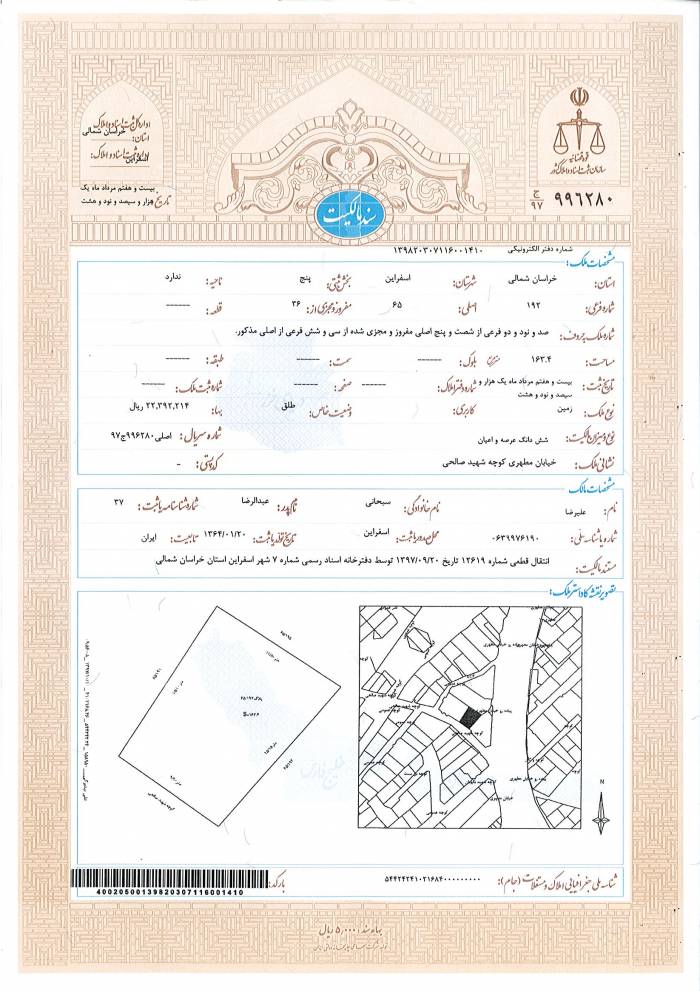 اداره کل ثبت اسناد و املاک
استان: خراسان شمالی
اداره ثبت اسناد و املاک: اسفراین
تاریخ بیست و هفتم مرداد ماه یک هزار و سیصد و نود و هشت
قوه قضائیه
سازمان ثبت اسناد و املاک کشور
۹۹۶۲۸۰ ج ۹۷
سند مالکیت
شماره دفتر الکترونیکی ۱۳۹۸۲۰۳۰۷۱۱۶۰۰۱۴۱۰
مشخصات ملک:
استان: خراسان شمالی شهرستان: اسفراین بخش ثبتی: پنج ناحیه: ندارد
شماره فرعی: ۱۹۲ اصلی: ۶۵ مفروز و مجزی از: ۳۶ قطعه: ------
شماره ملک به حروف: صد و نود و دو فرعی از شصت و پنج اصلی مفروز و مجزی شده از سی و شش فرعی از اصلی مذکور.
مساحت: ۱۶۳.۴ متر مربع بلوک: ------ سمت: ------ طبقه: ------
تاریخ ثبت: بیست و هفتم مرداد ماه یک هزار و سیصد و نود و هشت شماره دفتر املاک: ------ صفحه: ------ شماره ثبت ملک: ------
نوع ملک: زمین کاربری: وضعیت خاص: طلق بها: ۲۲,۳۹۲,۲۱۴ ریال
نوع و میزان مالکیت: شش دانگ عرصه و اعیان شماره سریال: اصلی۹۹۶۲۸۰ج۹۷
نشانی ملک: خیابان مطهری کوچه شهید صالحی کد پستی: -
مشخصات مالک
نام: علیرضا نام خانوادگی: سبحانی نام پدر: عبدالرضا شماره شناسنامه یا ثبت: ۳۷
شماره یا شناسه ملی: ۰۶۳۹۹۷۶۱۹۰ محل صدور یا ثبت: اسفراین تاریخ تولد یا ثبت: ۱۳۶۴/۰۱/۲۰ تابعیت: ایران
مستند مالکیت: انتقال قطعی شماره ۱۲۶۱۹ تاریخ ۱۳۹۷/۰۹/۲۰ توسط دفترخانه اسناد رسمی شماره ۷ شهر اسفراین استان خراسان شمالی
تصویر نقشه کاداستر ملک:
کوچه شهید صالحی
خیابان مطهری
N
خلیج فارس
شناسه ملی جغرافیایی املاک و مستغلات (جام):
بارکد:
4002050013982030711600​1410
بهاء سند: ۵,۰۰۰ ریال